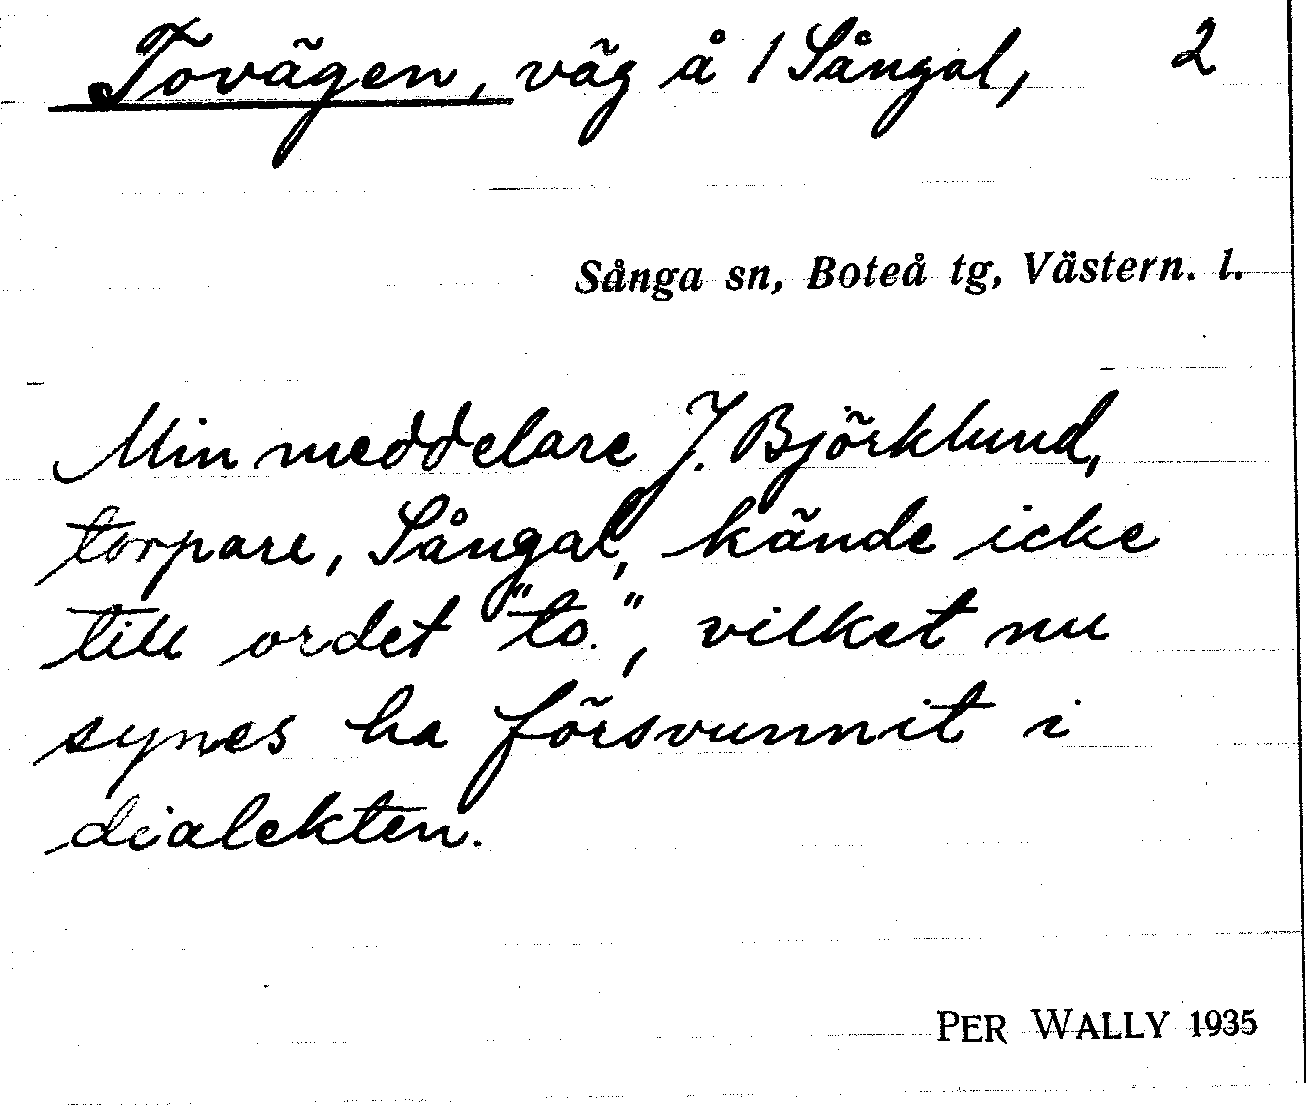 Tovägen, väg å 1 Sångal, 2
Sånga sn, Boteå tg, Västern. l.
Min meddelare J. Björklund,
torpare, Sångal, kände icke
till ordet "to.", vilket nu
synes ha försvunnit i
dialekten.
PER WALLY 1935